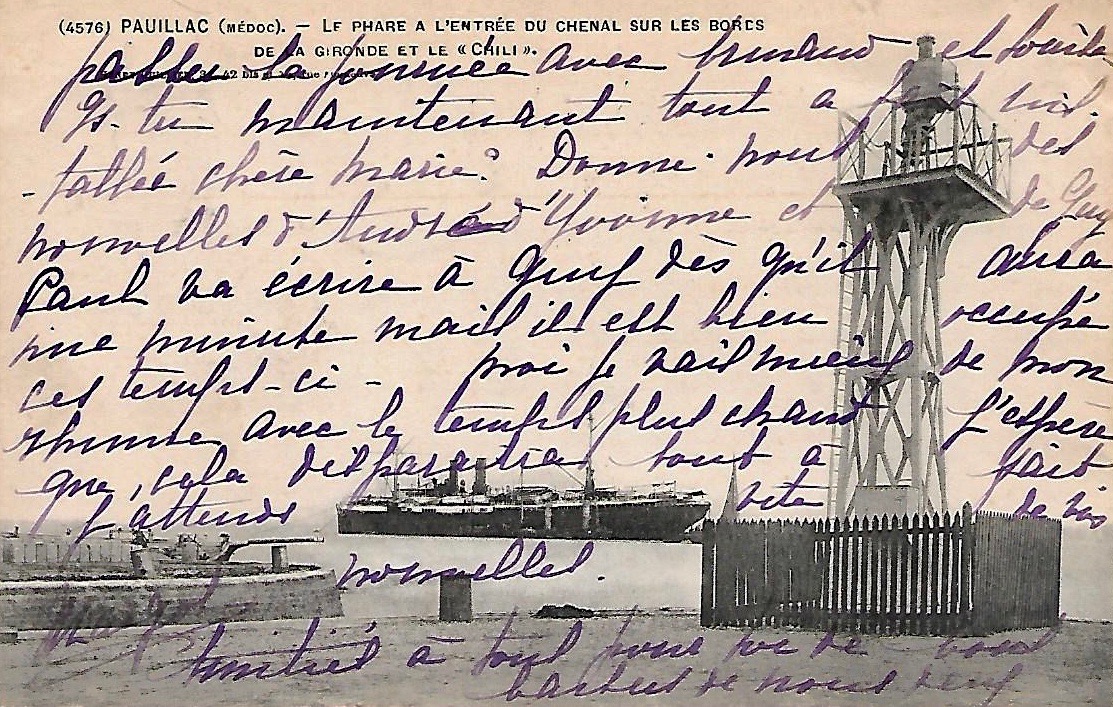 (4576) PAUILLAC (MÉDOC). — LE PHARE A L'ENTRÉE DU CHENAL SUR LES BORDS
DE LA GIRONDE ET LE « CHILI ».
passer la journée avec
Es-tu maintenant tout a fait ins
-tallée chère Marie? Donne-nous des
nouvelles d'André d'Yvonne et de Guy
Paul va écrire à Guy dès qu'il aura
une minute mais il est bien occupé
ces temps-ci - moi je vais mieux de mon
rhume avec le temps plus chaud j'espère
que cela disparaitra tout à fait
j'attends vite de vos
nouvelles.
amitiés à tous pour de vous
de nous deux